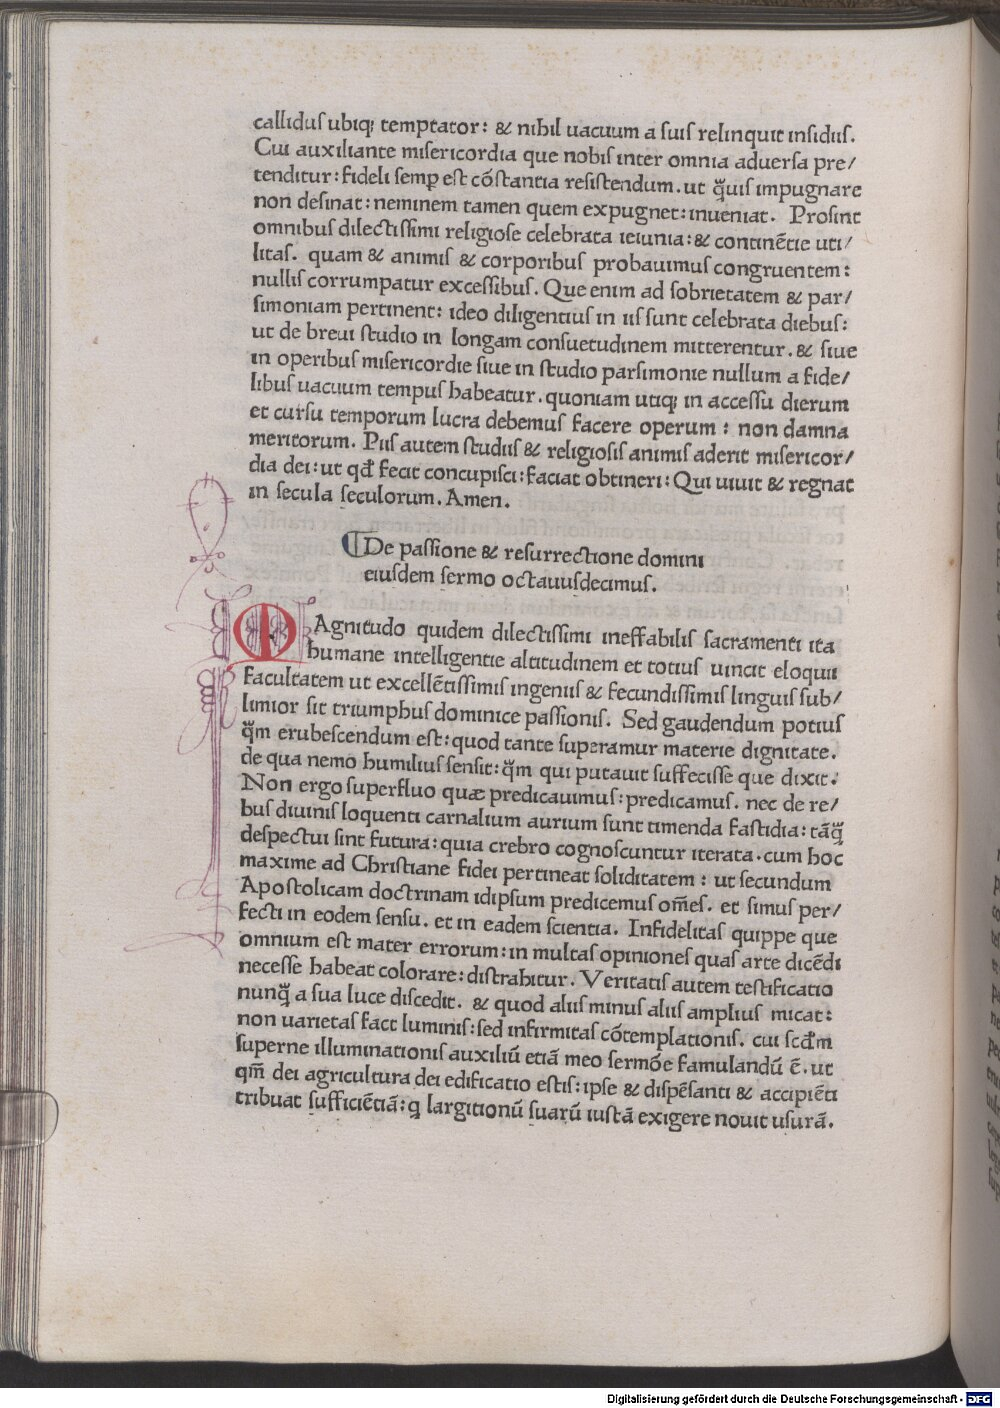 calliduſ ubiqꝫ temptator: & nihil uacuum a ſuiſ relinquit inſidiiſ.
Cui auxiliante miſericordia que nobiſ inter omnia aduerſa pre/
tenditur: fideli ſemꝑ eſt cōſtantia reſiſtendum. ut q̄uiſ impugnare
non deſinat: neminem tamen quem expugnet: inueniat. Proſint
omnibuſ dilectiſſimi religioſe celebrata ieiunia: & continētie uti/
litaſ. quam & animiſ & corporibuſ probauimuſ congruentem:
nulliſ corrumpatur exceſſibuſ. Que enim ad ſobrietatem & par/
ſimoniam pertinent: ideo diligentiuſ in iiſ ſunt celebrata diebuſ:
ut de breui ſtudio in longam conſuetudinem mitterentur. & ſiue
in operibuſ miſericordie ſiue in ſtudio parſimonie nullum a fide/
libuſ uacuum tempuſ habeatur. quoniam utiqꝫ in acceſſu dierum
et curſu temporum lucra debemuſ facere operum: non damna
meritorum. Piiſ autem ſtudiiſ & religioſiſ animiſ aderit miſericor/
dia dei: ut qđ fecit concupiſci: faciat obtineri: Qui uiuit & regnat
in ſecula ſeculorum. Amen.
De paſſione & reſurrectione domini
eiuſdem ſermo octauuſdecimuſ.
MAgnitudo quidem dilectiſſimi ineffabiliſ ſacramenti ita
humane intelligentie altitudinem et totiuſ uincit eloquii
facultatem ut excellētiſſimiſ ingeniiſ & fecundiſſimiſ linguiſ ſub/
limior ſit triumphuſ dominice paſſioniſ. Sed gaudendum potiuſ
q̄m erubeſcendum eſt: quod tante ſuperamur materie dignitate.
de qua nemo humiliuſ ſenſit: q̄m qui putauit ſuffeciſſe que dixit.
Non ergo ſuperfluo quæ predicauimuſ: predicamuſ. nec de re/
buſ diuiniſ loquenti carnalium aurium ſunt timenda faſtidia: tāq̄
deſpectui ſint futura: quia crebro cognoſcuntur iterata. cum hoc
maxime ad Chriſtiane fidei pertineat ſoliditatem: ut ſecundum
Apoſtolicam doctrinam idipſum predicemuſ om̄eſ. et ſimuſ per/
fecti in eodem ſenſu. et in eadem ſcientia. Infidelitaſ quippe que
omnium eſt mater errorum: in multaſ opinioneſ quaſ arte dicēdi
neceſſe habeat colorare: diſtrahitur. Veritatiſ autem teſtificatio
nunq̄ a ſua luce diſcedit. & quod aliiſ minuſ aliiſ ampliuſ micat:
non uarietaſ facit luminiſ: ſed infirmitaſ cōtemplationiſ. cui ſcđm
ſuperne illuminationiſ auxiliū etiā meo ſermōe famulandū ē. ut
qm̄ dei agricultura dei edificatio eſtiſ: ipſe & diſpēſanti & accipiēti
tribuat ſufficiētiā: q largitionū ſuarū iuſtā exigere nouit uſurā.
Digitalisierung gefördert durch die Deutsche Forschungsgemeinschaft - DFG